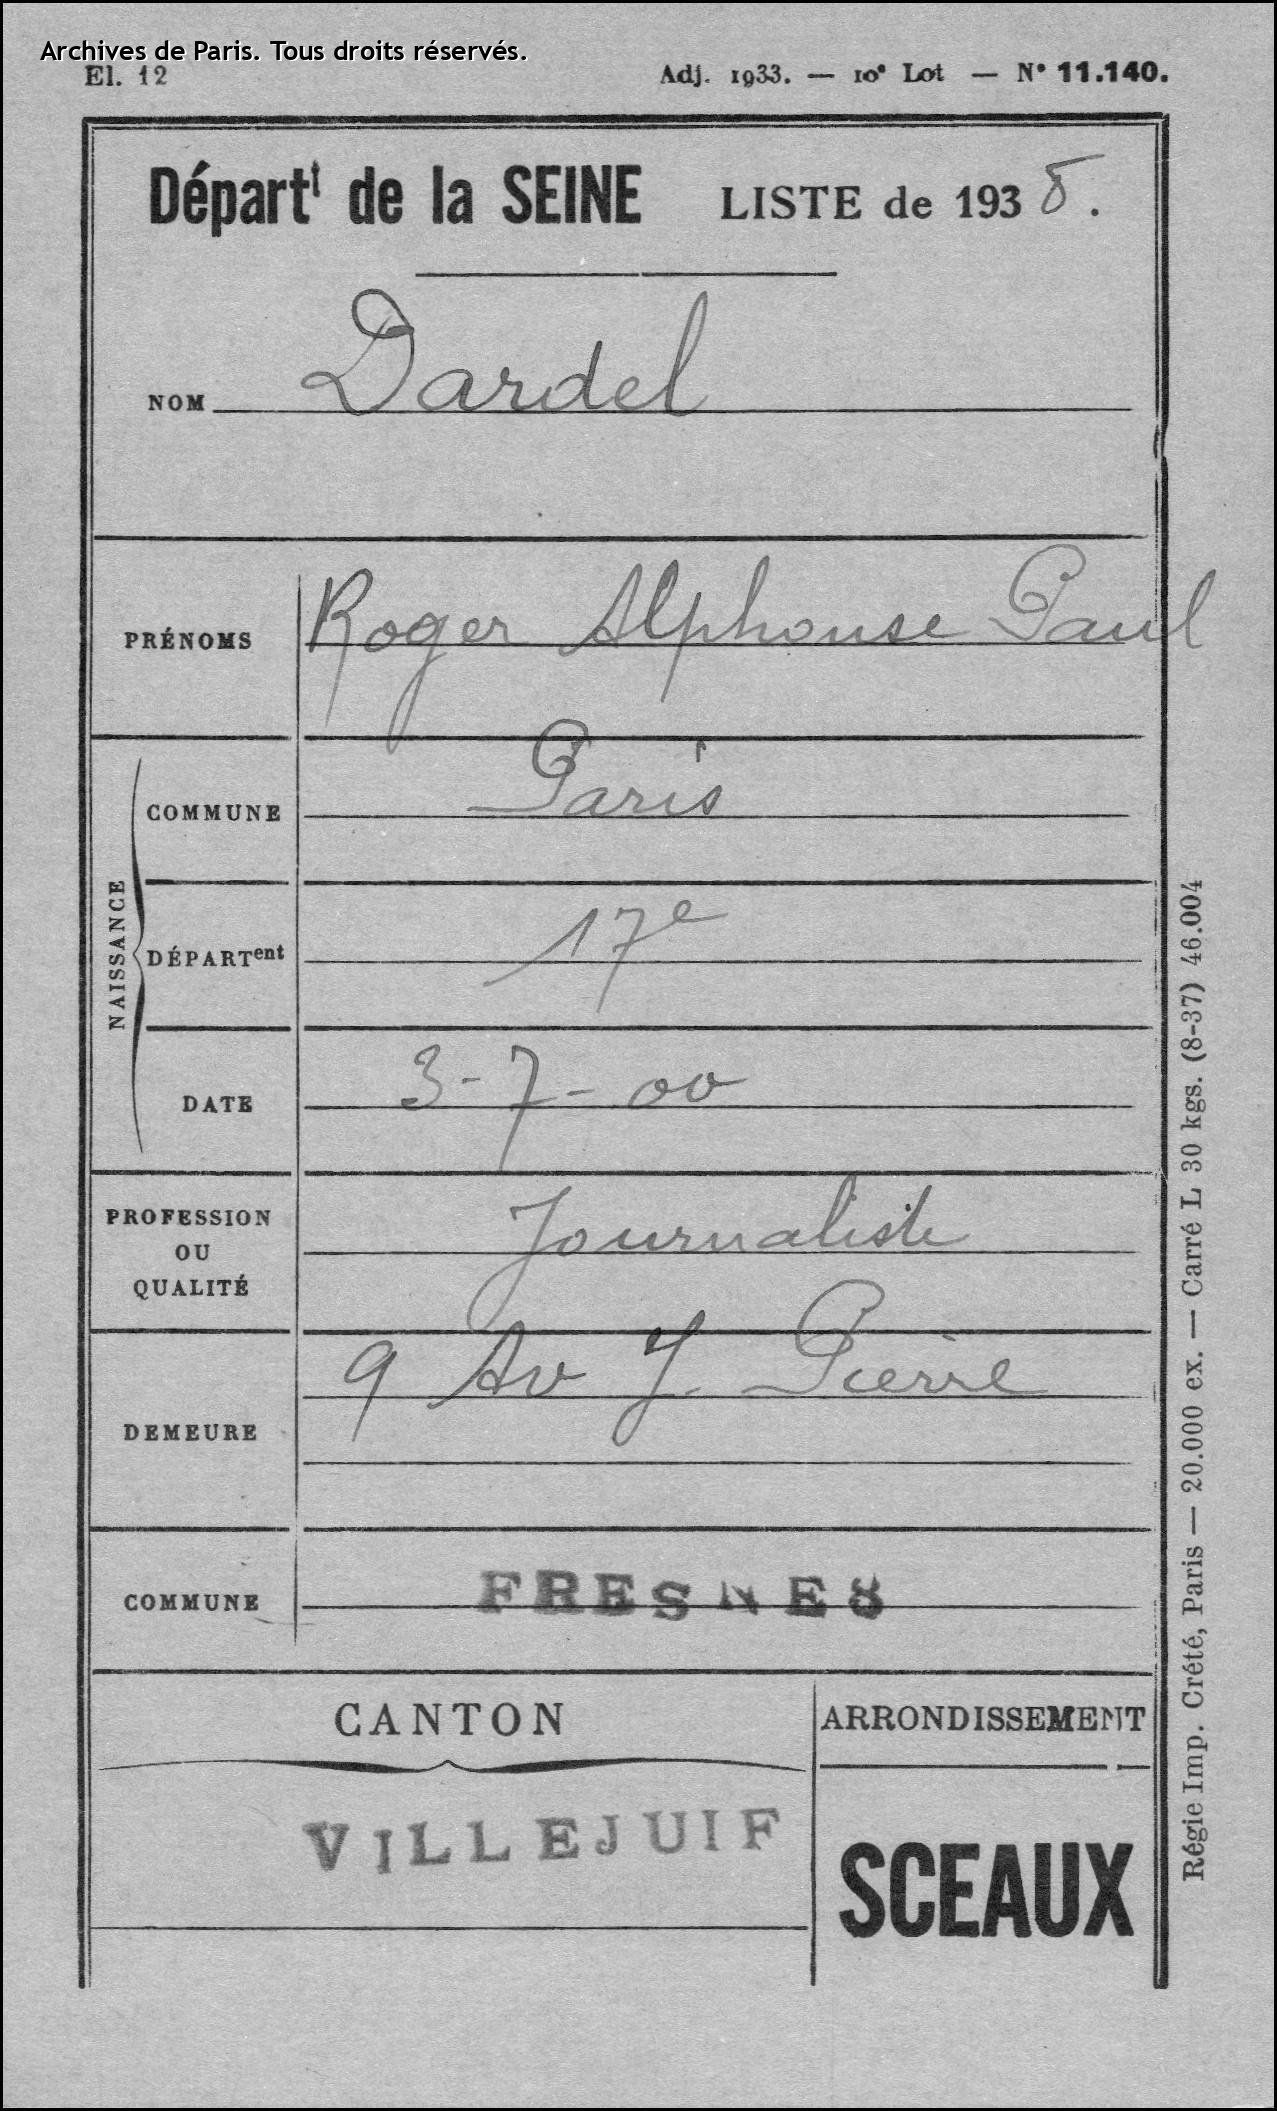 Archives de Paris. Tous droits réservés.
El. 12
Adj. 1933. — 10e Lot — N° 11.140.
Départt de la SEINE LISTE de 1938.
NOM Dardel
PRÉNOMS Roger Alphonse Paul
NAISSANCE
COMMUNE Paris
DÉPARTent 17e
DATE 3-7-00
PROFESSION
OU
QUALITÉ
Journaliste
DEMEURE 9 Av J. Pierre
COMMUNE FRESNES
CANTON
VILLEJUIF
ARRONDISSEMENT
SCEAUX
Régie Imp. Crété, Paris — 20.000 ex. — Carré L 30 kgs. (8-37) 46.004